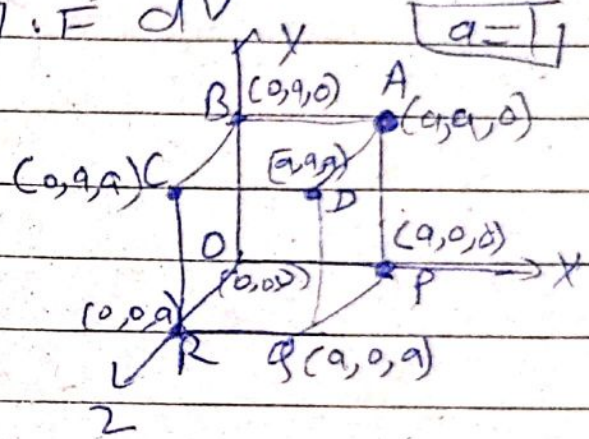 ∇.F dV
a=1,
Y
B (0,a,0) A (a,a,0)
(0,a,a) C (a,a,a) D
O (0,0,0) (a,0,0) P X
(0,0,a) R Q (a,0,a)
Z